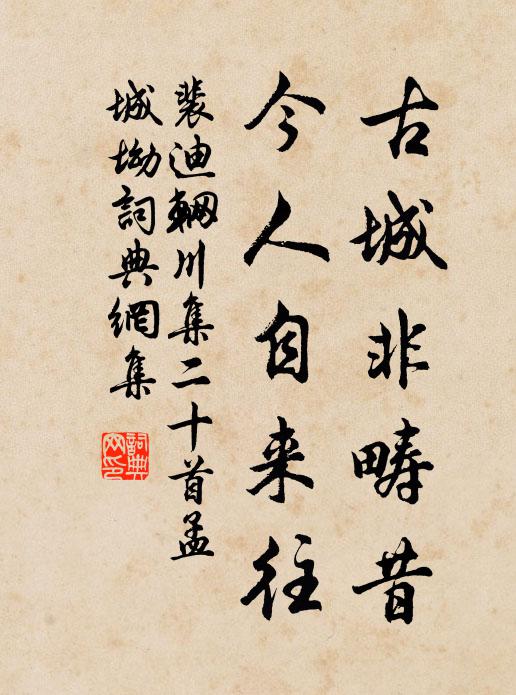 古城非疇昔
今人自來往
裴迪輞川集二十首孟
城坳詞典網集
詞典
网印